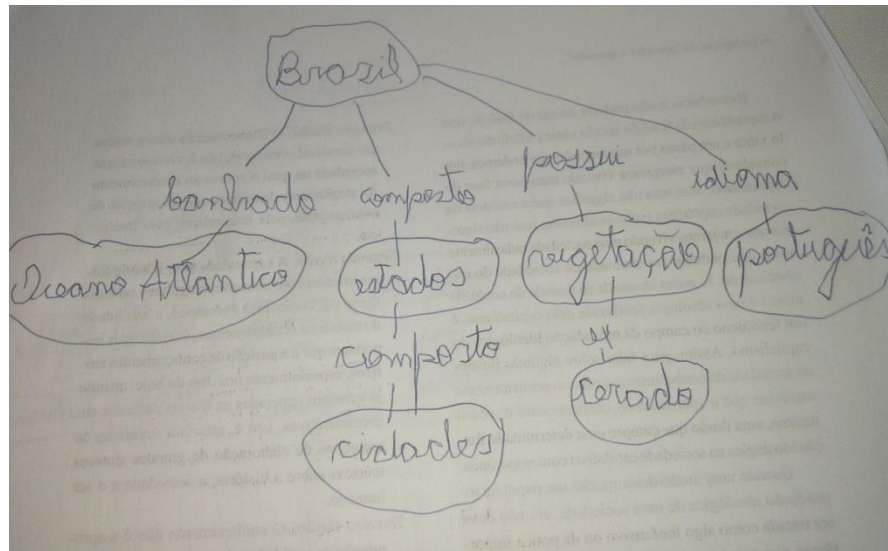 Brazil
banhado composto possui idioma
Oceano Atlântico estados vegetação português
composto ex
cidades cerado